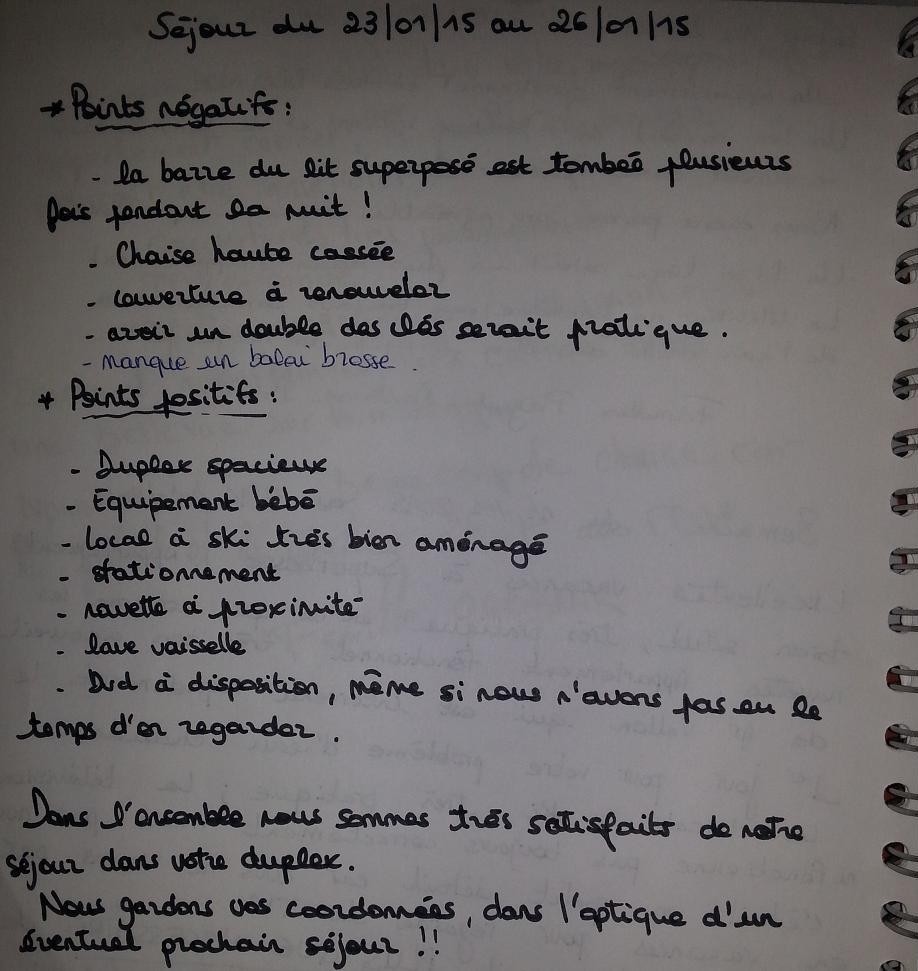 Séjour du 23/01/15 au 26/01/15
* Points négatifs :
- la barre du lit superposé est tombée plusieurs
fois pendant la nuit !
- Chaise haute cassée
- couverture à renouveler
- avoir un double des clés serait pratique .
- manque un balai brosse .
* Points positifs :
- Duplex spacieux
- Equipement bébé
- local à ski très bien aménagé
- stationnement
- navette à proximité
- lave vaisselle
- Dvd à disposition, même si nous n'avons pas eu le
temps d'en regarder .
Dans l'ensemble nous sommes très satisfaits de notre
séjour dans votre duplex.
Nous gardons vos coordonnées, dans l'optique d'un
éventuel prochain séjour !!